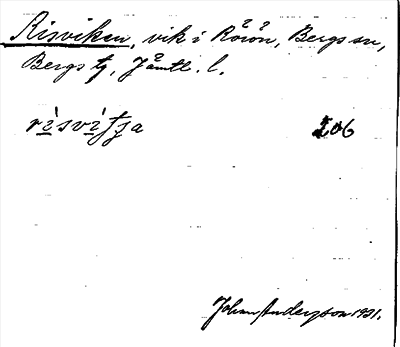 Risviken, vik i Rörön, Bergs sn,
Bergs tg, Jämtl. l.
risvitja 206
Johan Anderzson 1931.